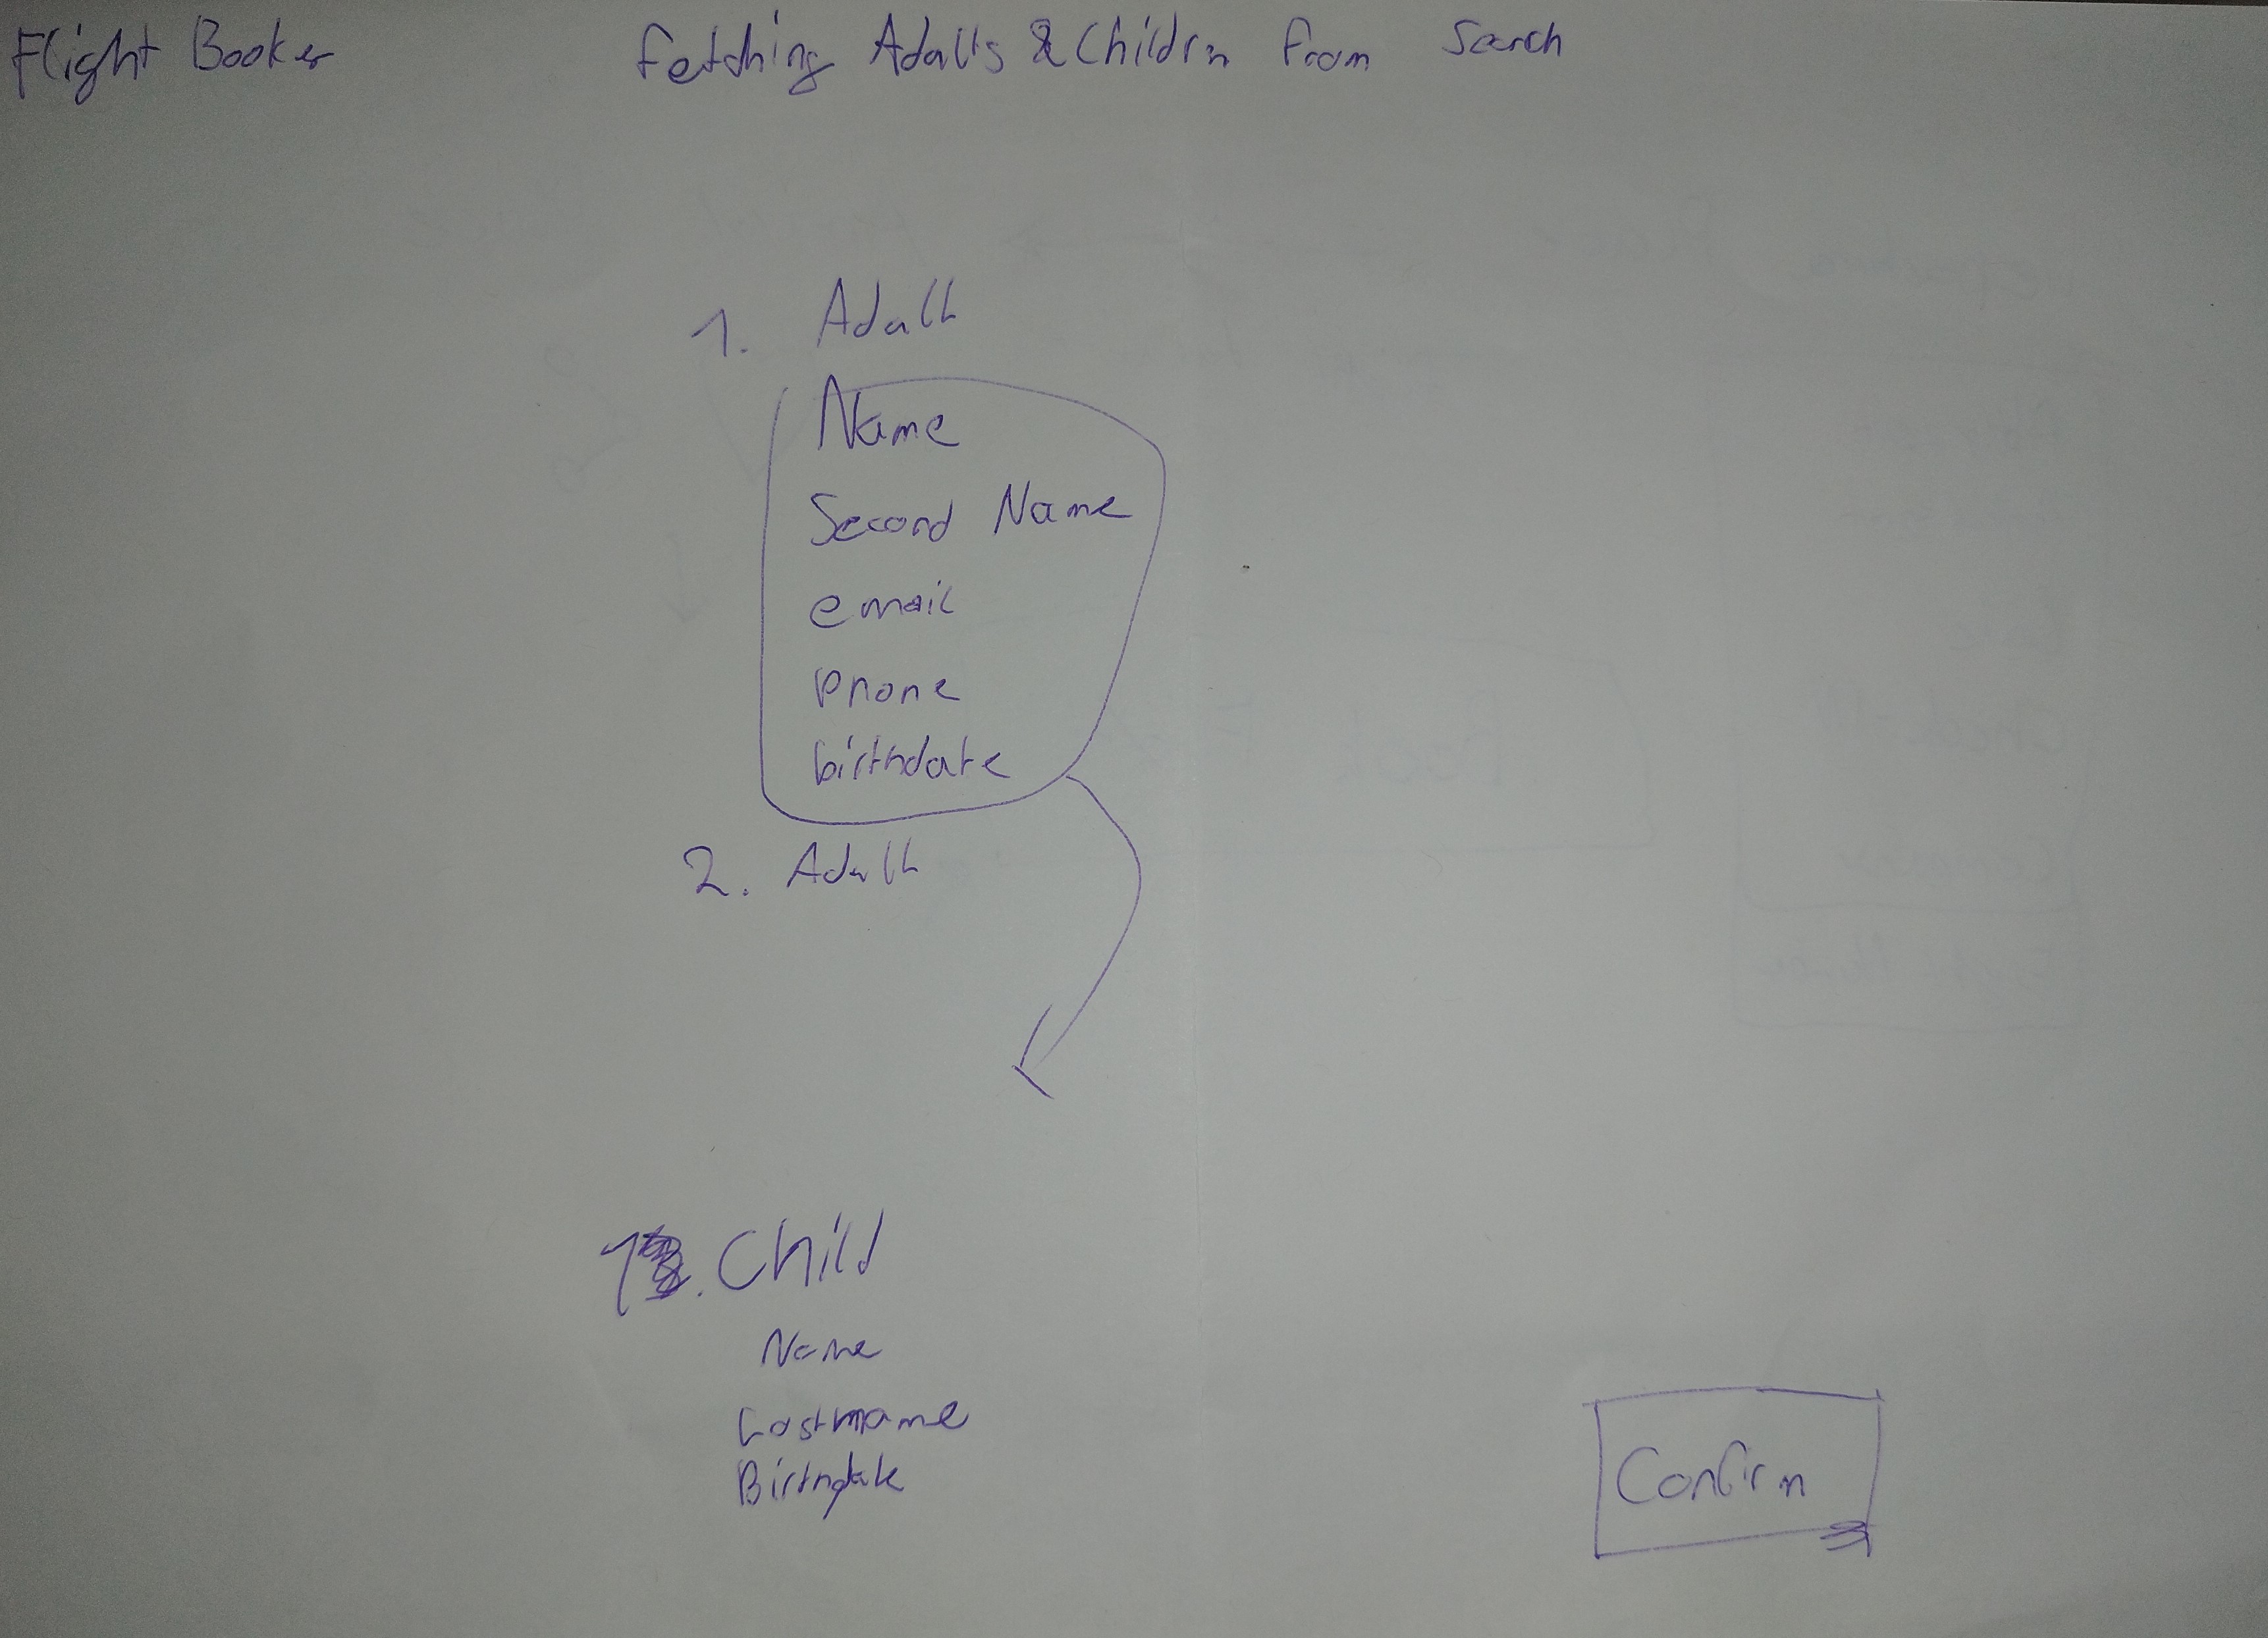 Flight Booker
Fetching Adults & Children From Search
1. Adult
Name
Second Name
email
Phone
birthdate
2. Adult
1. Child
Name
Lastname
Birthdate
Confirm